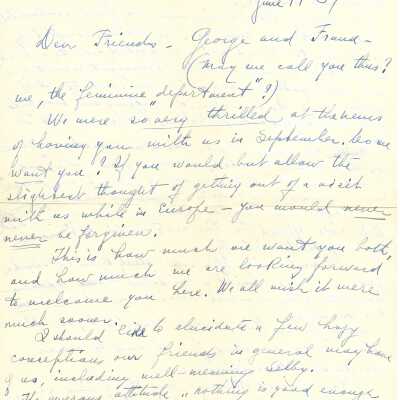 Dear Friends - George and Fraud -
(May we call you thus?
we, the feminine "department"?)
We were so very thrilled at the news
of having you with us in September. Do we
want you? If you would but allow the
slightest thought of getting out of a visit
with us while in Europe - you would never
never be forgiven.
This is how much we want you both,
and how much we are looking forward
to welcome you here. We all wish it were
much sooner.
I should like to elucidate a few hazy
conceptions our friends in general may have
of us, including well-meaning Selby.
attitude, "nothing is good enough